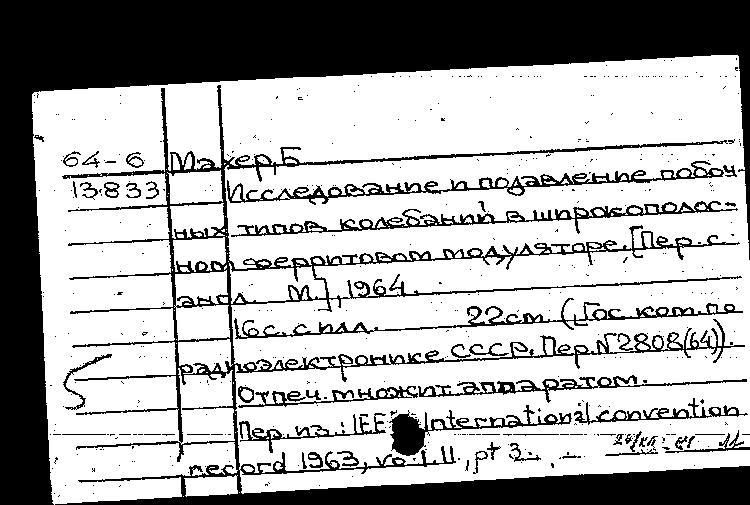 64-6 Махер, Б
13833 Исследование и подавление побоч-
ных типов колебаний в широкополос-
ном ферритовом модуляторе. [Пер. с
англ. М.], 1964.
16 с. с илл. 22 см. (Гос. ком. по
радиоэлектронике СССР. Пер. № 2808(64)).
Отпеч. множит. аппаратом.
Пер. из: IEEE International convention
record 1963, vol. 11, pt 3. –